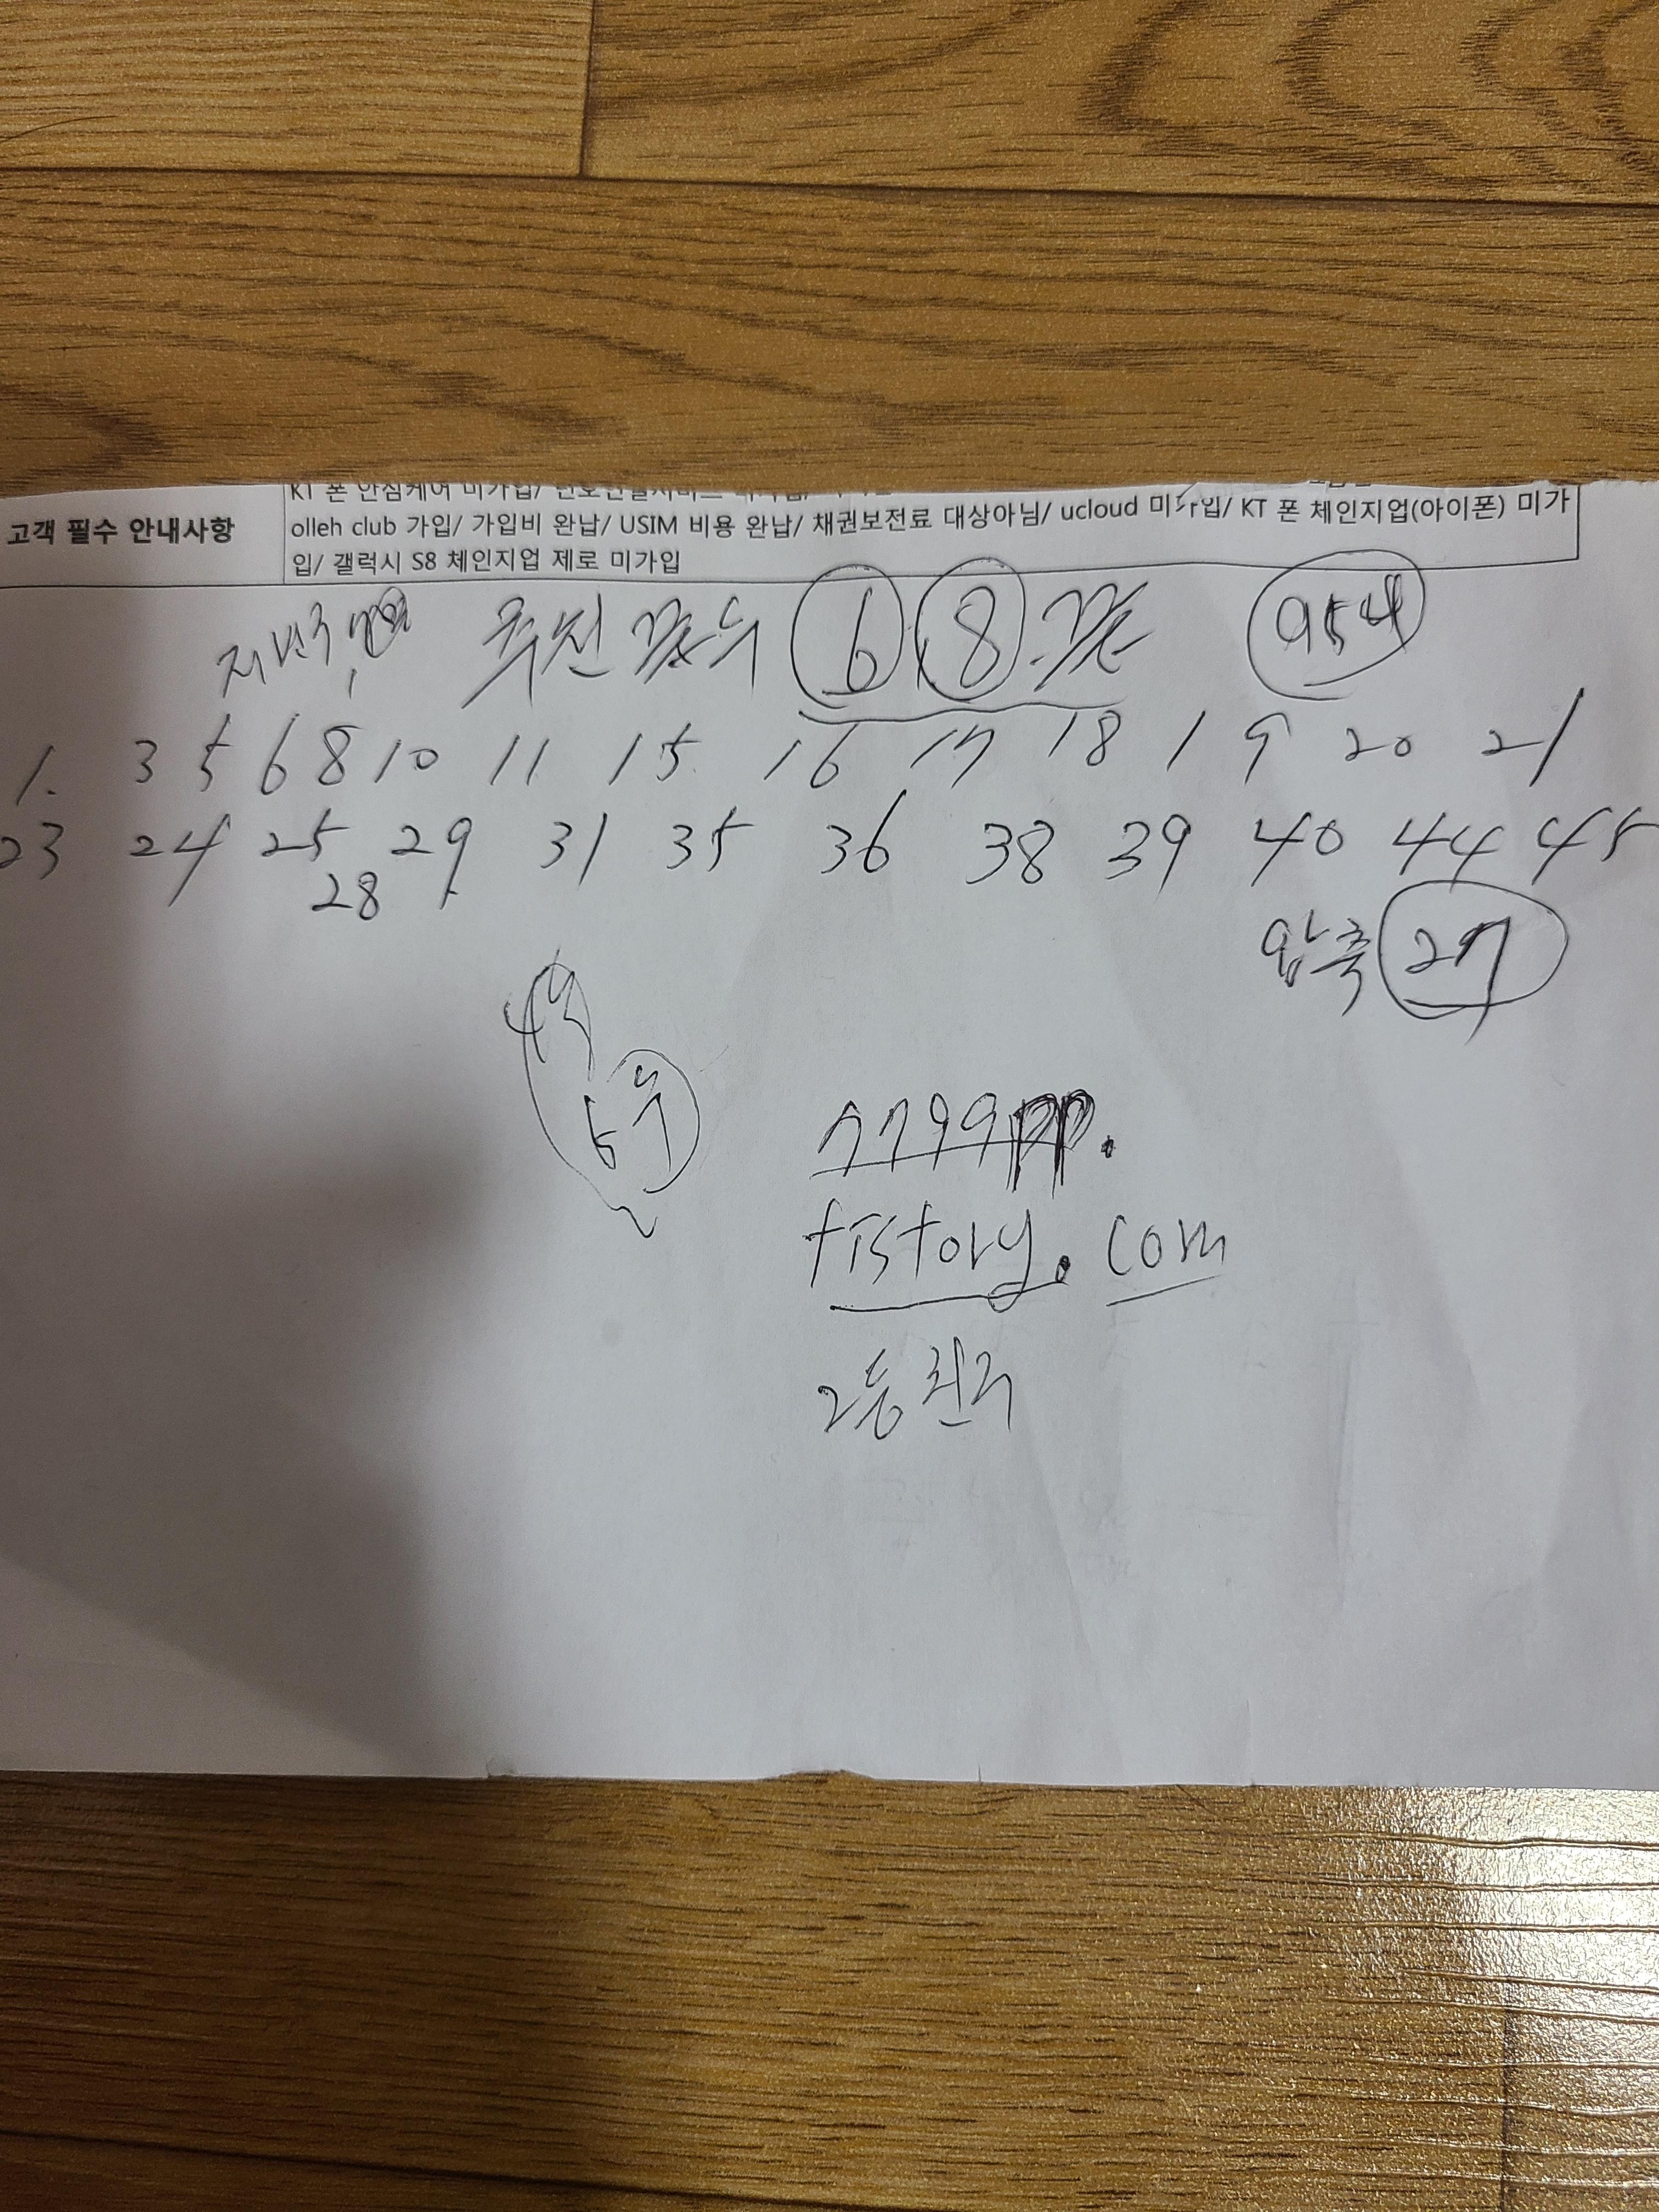 KT 폰 안심케어 미가입/
고객 필수 안내사항
olleh club 가입/ 가입비 완납/ USIM 비용 완납/ 채권보전료 대상아님/ ucloud 미 입/ KT 폰 체인지업(아이폰) 미가
입/ 갤럭시 S8 체인지업 제로 미가입
추천 끝수 6 8 끝 954
1. 3 5 6 8 10 11 15 16 17 18 19 20 21
23 24 25 29 31 35 36 38 39 40 44 45
28
압축 27
7799pp.
tistory.com
2등